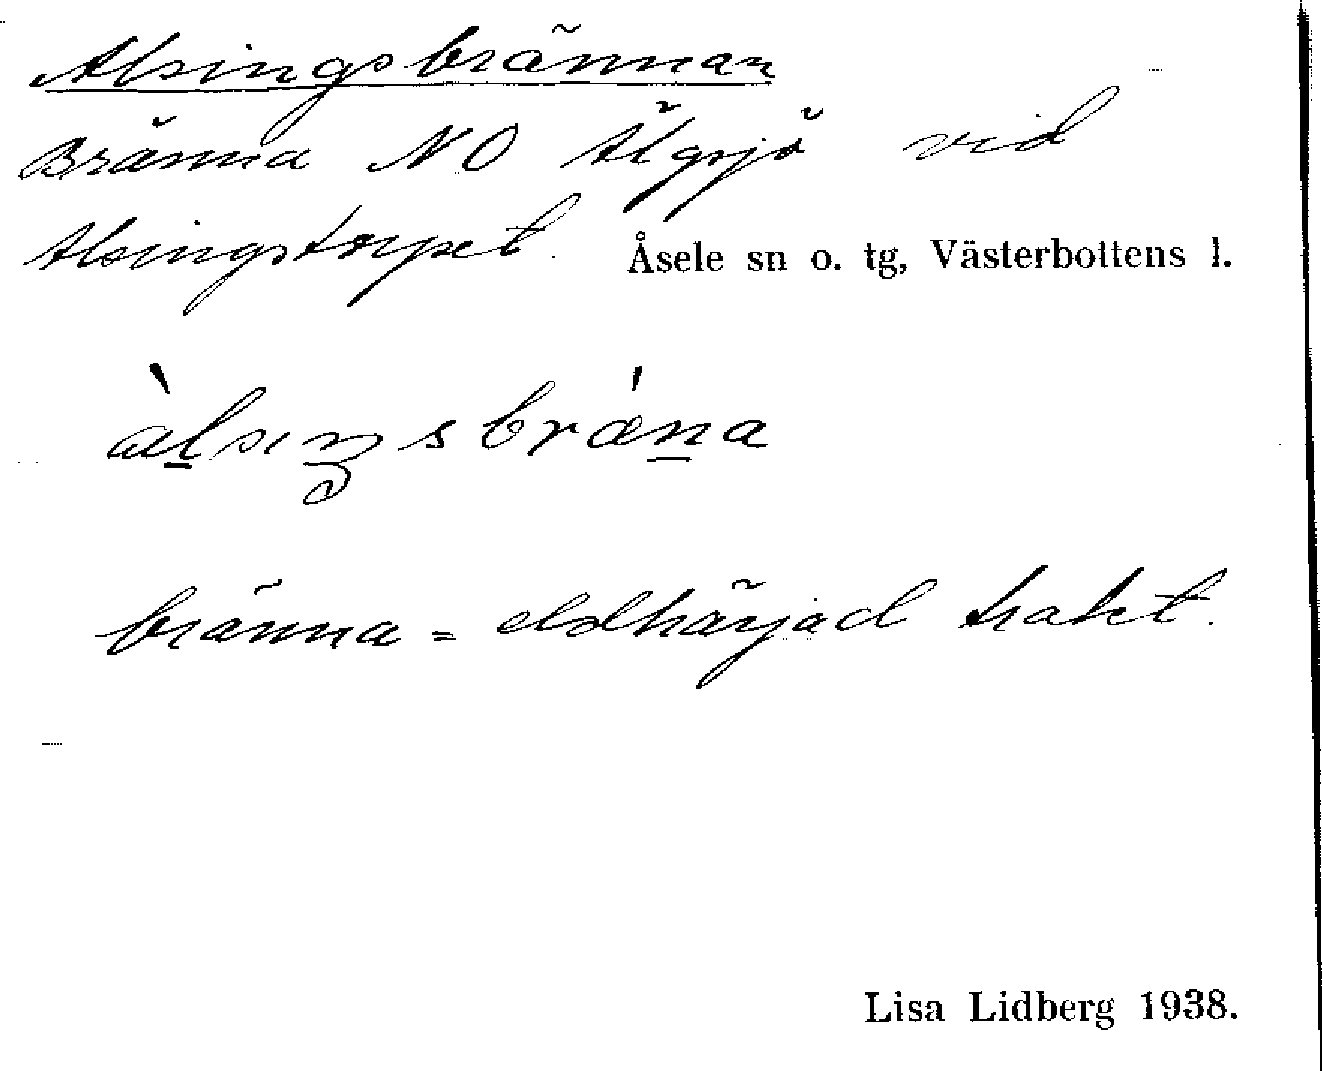 Alsingsbrännan
Bränna NO Älgsjö vid
Alsingstorpet. Åsele sn o. tg, Västerbottens l.
bränna = eldhärjad trakt.
Lisa Lidberg 1938.